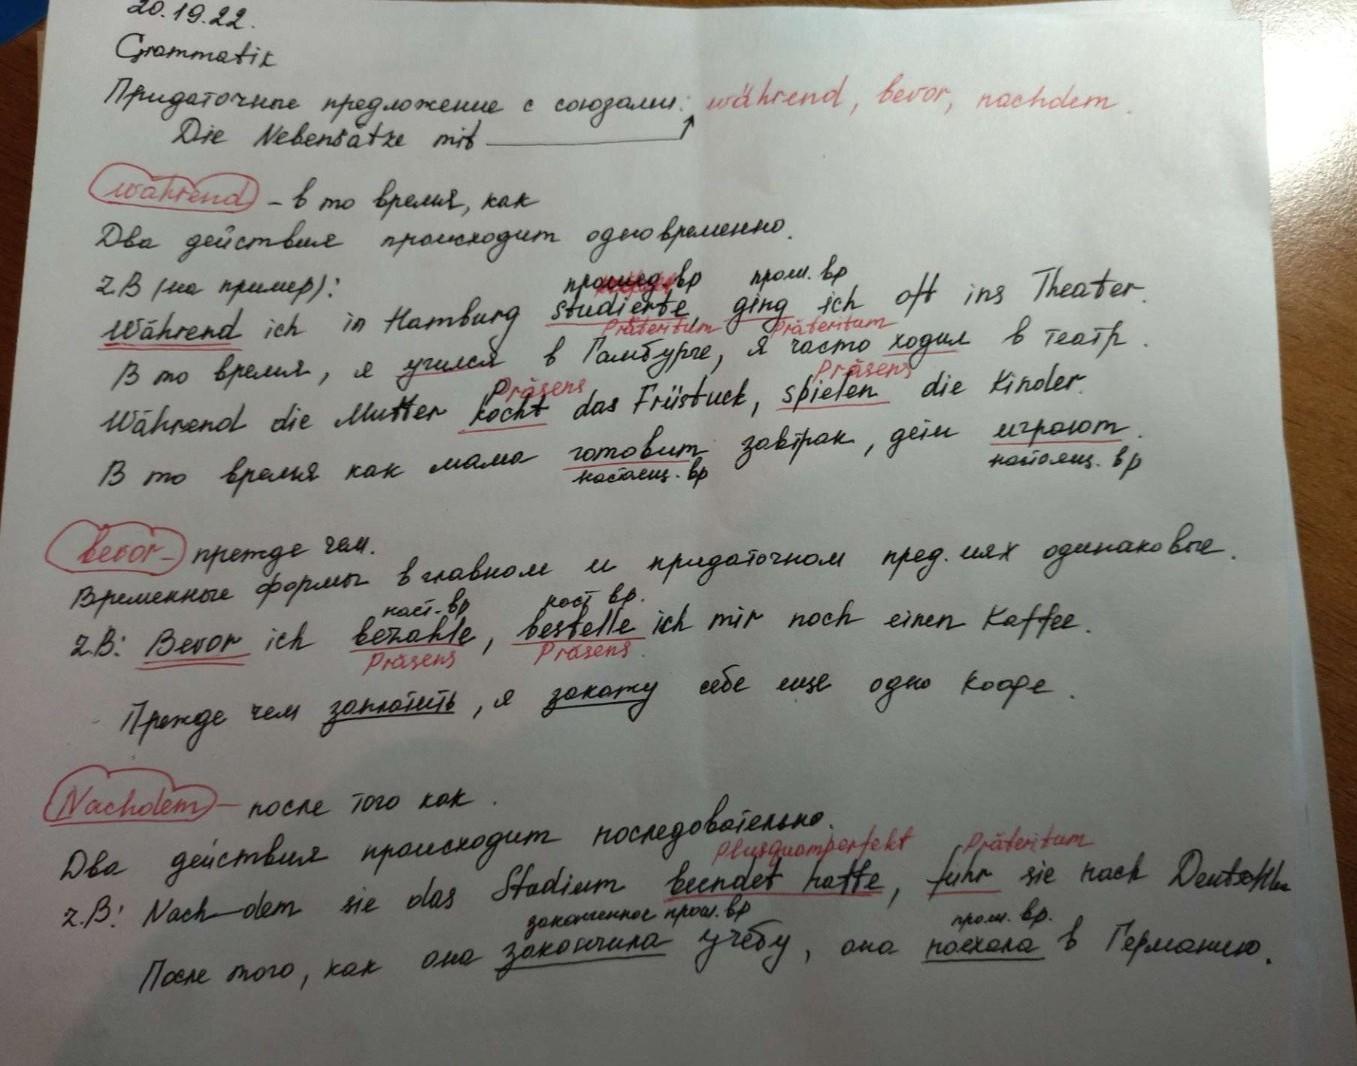 20.19.22.
Grammatik
Придаточные предложение с союзами: während, bevor, nachdem.
Die Nebensätze mit
während - в то время, как
Два действия происходит одновременно.
z.B (на пример):
прошед. вр прош. вр
Während ich in Hamburg studierte, ging ich oft ins Theater.
Präteritum Präteritum
В то время, я учился в Гамбурге, я часто ходил в театр.
Präsens Präsens
Während die Mutter kocht das Früstuck, spielen die Kinder.
В то время как мама готовит завтрак, дети играют.
настоящ. вр настоящ. вр
bevor - прежде чем.
Временные формы в главном и придаточном пред.иях одинаковые.
наст. вр наст вр.
z.B: Bevor ich bezahle, bestelle ich mir noch einen Kaffee.
Präsens Präsens
Прежде чем заплатить, я закажу себе еще одно кофе.
Nachdem - после того как.
Два действия происходит последовательно.
Plusquamperfekt Präteritum
z.B: Nach-dem sie das Stadium beendet hatte, fuhr sie nach Deutschln
законченное прош. вр прош. вр.
После того, как она закончила учебу, она поехала в Германию.